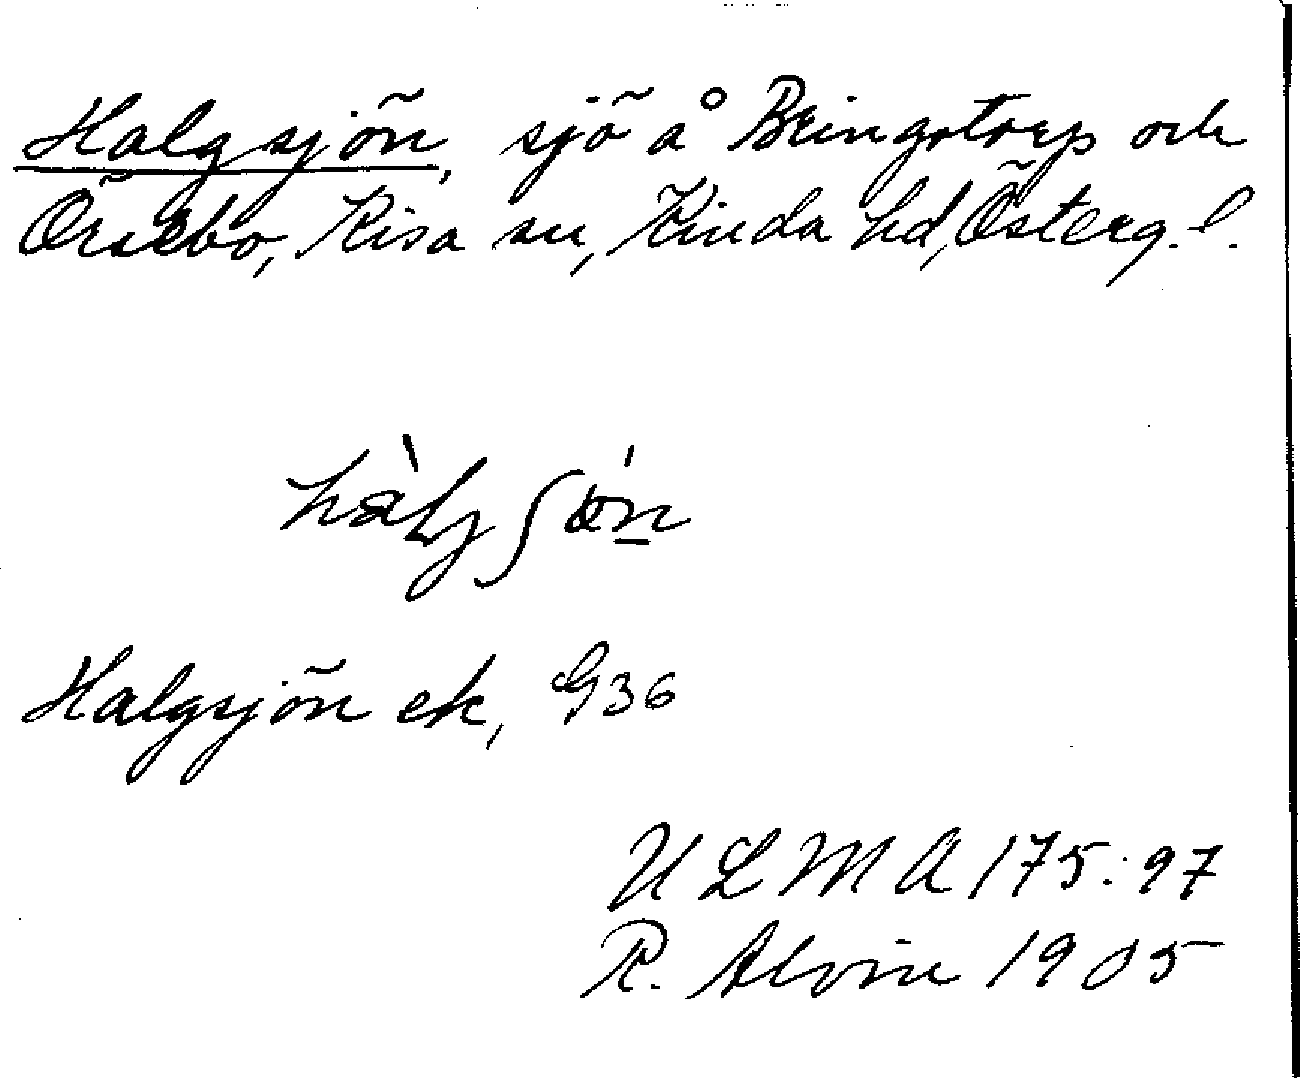 Halgsjön, sjö å Bringstorp och
Örsebo, Kisa sn, Kinda hd, Österg. l.
hàlgʃøn
Halgsjön ek, G36
ULMA 175:97
R. Alvin 1905